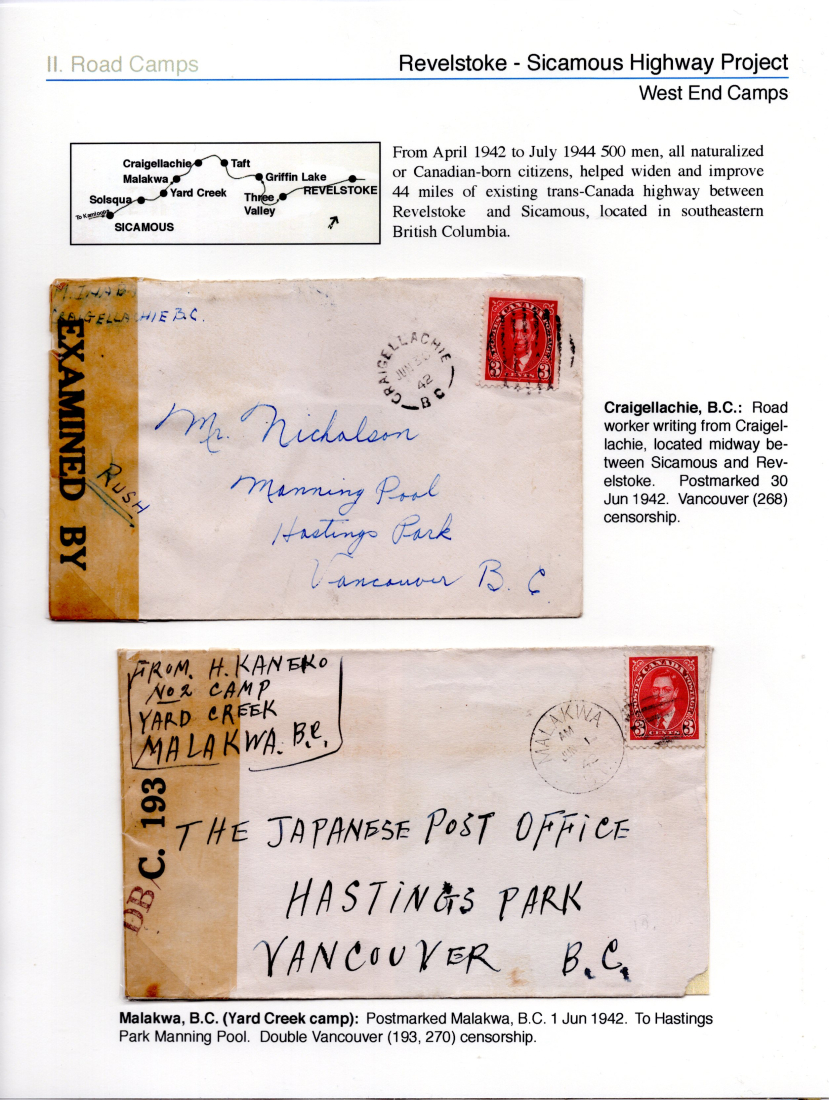 II. Road Camps
Revelstoke - Sicamous Highway Project
West End Camps
Craigellachie
Taft
Malakwa
Griffin Lake
Yard Creek
REVELSTOKE
Solsqua
Three
Valley
To Kamloops
SICAMOUS
From April 1942 to July 1944 500 men, all naturalized
or Canadian-born citizens, helped widen and improve
44 miles of existing trans-Canada highway between
Revelstoke and Sicamous, located in southeastern
British Columbia.
CRAIGELLACHIE B.C.
EXAMINED BY
RUSH
CRAIGELLACHIE
JUN 30
42
B C
POSTES CANADA POSTAGE
3 CENTS 3
Mr. Nicholson
Manning Pool
Hastings Park
Vancouver B. C.
Craigellachie, B.C.: Road
worker writing from Craigel-
lachie, located midway be-
tween Sicamous and Rev-
elstoke. Postmarked 30
Jun 1942. Vancouver (268)
censorship.
FROM. H. KANEKO
No 2 CAMP
YARD CREEK
MALAKWA. B.C.
C. 193
DB
MALAKWA
AM
JUN 1
42
POSTES CANADA POSTAGE
3 CENTS 3
THE JAPANESE POST OFFICE
HASTINGS PARK
VANCOUVER B.C.
Malakwa, B.C. (Yard Creek camp): Postmarked Malakwa, B.C. 1 Jun 1942. To Hastings
Park Manning Pool. Double Vancouver (193, 270) censorship.